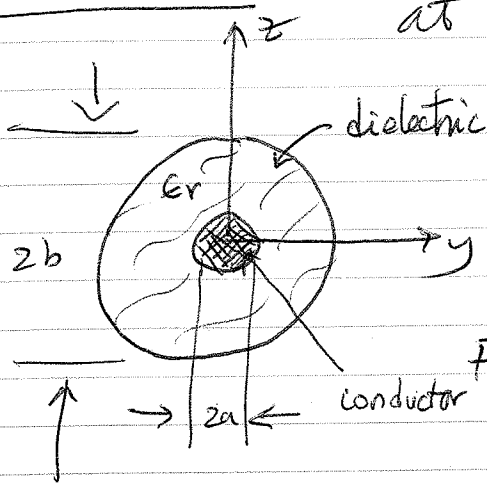 at
z
dielectric
εr
2b
y
F
conductor
2a